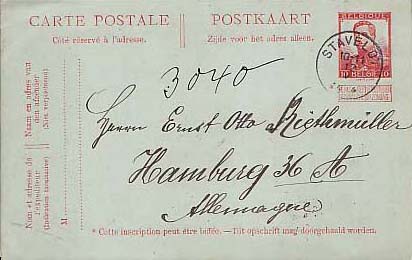 CARTE POSTALE POSTKAART
Côté réservé à l'adresse. Zijde voor het adres alleen.
BELGIQUE
10 BELGIË 10
STAVELO
3040
Herrn Ernst Otto Riethmüller
Hamburg 36 A
Allemagne
* Cette inscription peut être biffée. — Dit opschrift mag doorgehaald worden.
Naam en adres van
den afzender
(Niet verplichtend)
Nom et adresse de
l'expéditeur
(Indication facultative)
M.